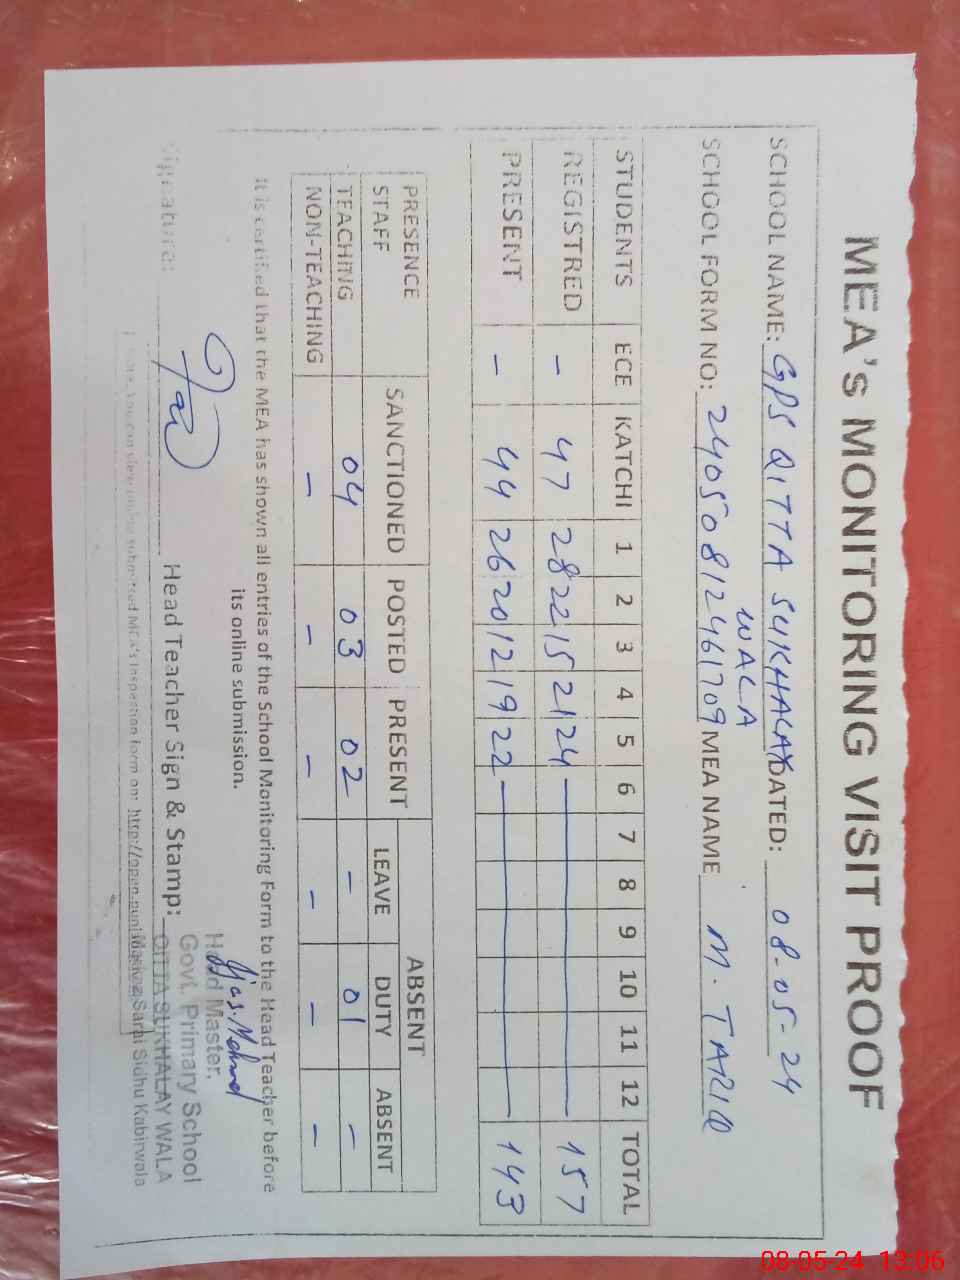 MEA's MONITORING VISIT PROOF
SCHOOL NAME: GPS QITTA SUKHALAY DATED: 08-05-24
WALA
SCHOOL FORM NO: 24050812461709 MEA NAME M. TARIQ
STUDENTS ECE KATCHI 1 2 3 4 5 6 7 8 9 10 11 12 TOTAL
REGISTRED - 47 28 22 15 21 24 — 157
PRESENT - 44 26 20 12 19 22 — 143
PRESENCE STAFF SANCTIONED POSTED PRESENT ABSENT
LEAVE DUTY ABSENT
TEACHING 04 03 02 - 01 -
NON-TEACHING - - - - - -
It is certified that the MEA has shown all entries of the School Monitoring Form to the Head Teacher before
its online submission.
Signature: Head Teacher Sign & Stamp:
Head Master,
Govt. Primary School
QITTA SUKHALAY WALA
Sarai Sidhu Kabirwala
You can view submitted MEA's Inspection form on: http://open.punjab
08-05-24 13:06